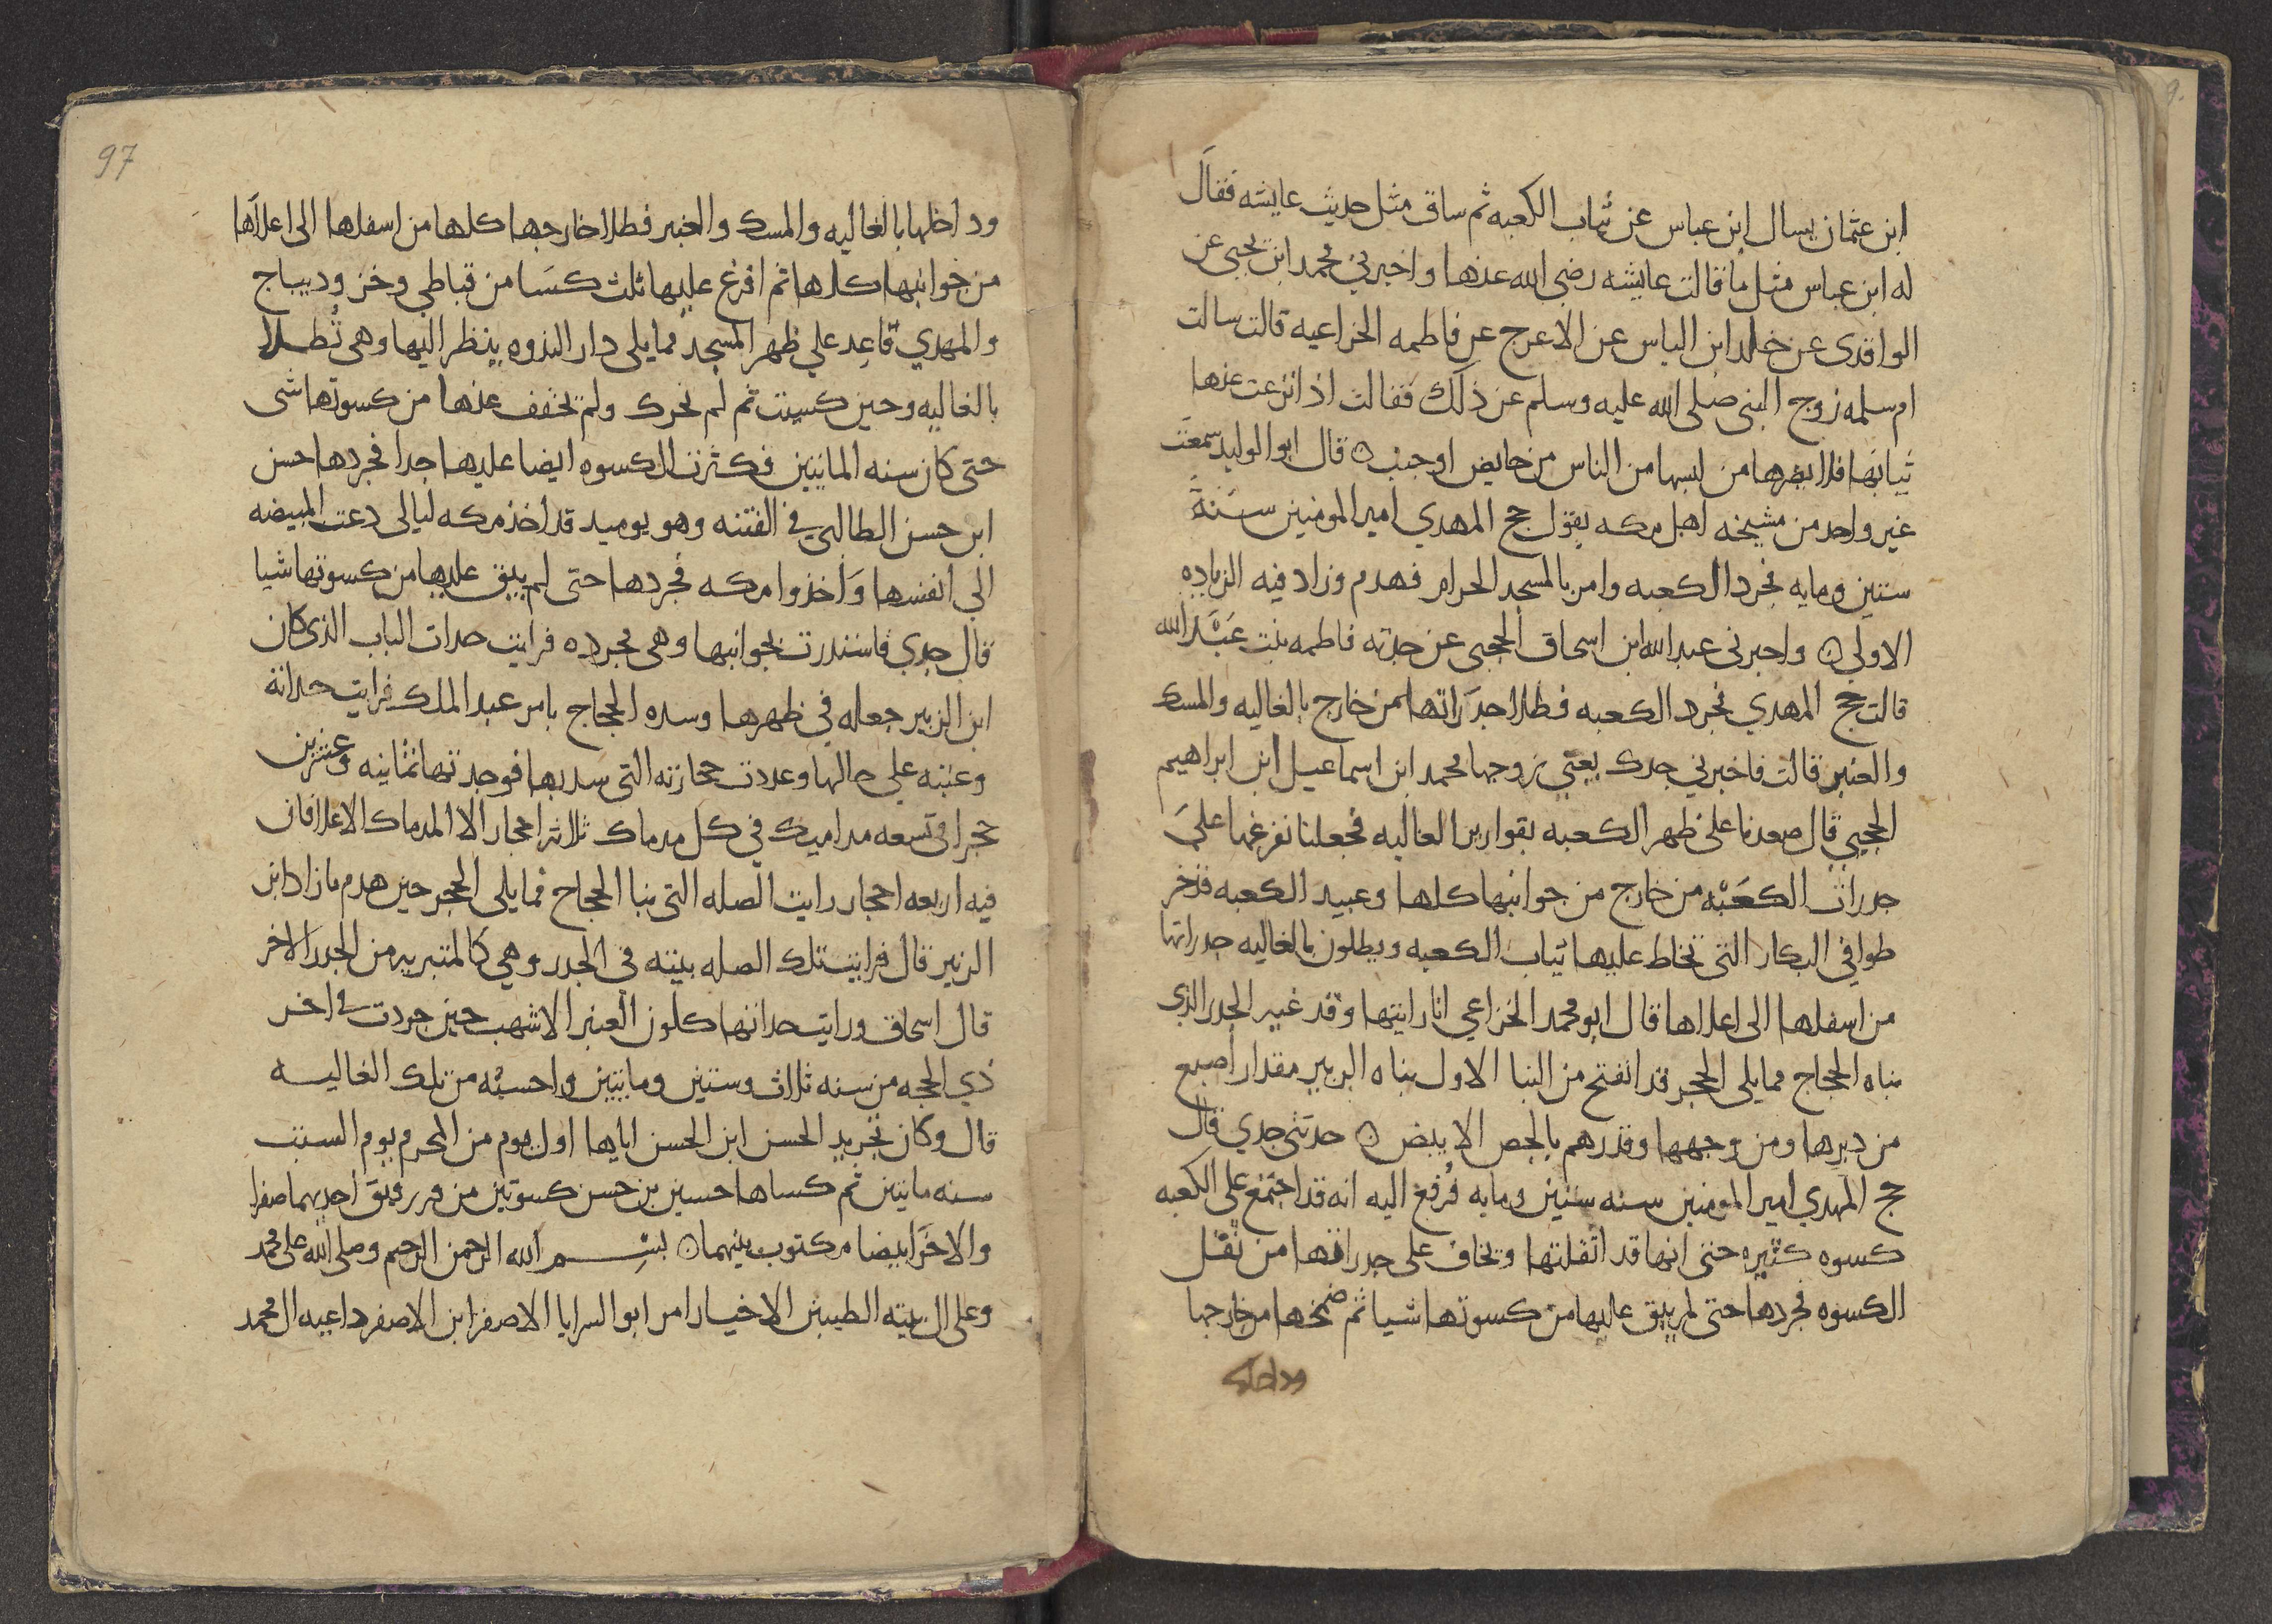 ابن عثمان يسال ابن عباس عن ثياب الكعبه ثم ساق مثل حديث عايشه فقال
له ابن عباس مثل ما قالت عايشه رضي الله عنها واخبرني محمد ابن يحيى عن
الواقدى عن خالد ابن الياس عن الاعرج عن فاطمه الخزاعيه قالت سالت
ام سلمه زوج النبي صلى الله عليه وسلم عن ذلك فقالت اذا نزعت عنها
ثيابها فلا يضرها من لبسها من الناس من حايض او جنب ۞ قال ابو الوليد سمعت
غير واحد من مشيخه اهل مكه يقول حج المهدي امير المومنين سنة
ستين ومايه فجرد الكعبه وامر بالمسجد الحرام فهدم وزاد فيه الزياده
الاولى ۞ واخبرني عبد الله ابن اسحاق الحجبى عن جدته فاطمه بنت عبد الله
قالت حج المهدي فجرد الكعبه فطلا جدراتها من خارج بالغاليه والمسك
والعنبر قالت فاخبرني جدك يعني زوجها محمد ابن اسماعيل ابن ابراهيم
الحجبي قال صعدنا على ظهر الكعبه بقوارير الغاليه فجعلنا نفرغها على
جدرات الكعبه من خارج من جوانبها كلها وعبيد الكعبه قد خر
طوا في البكار التى تخاط عليها ثياب الكعبه ويطلون بالغاليه جدراتها
من اسفلها الى اعلاها قال ابو محمد الخزاعي انا رايتها وقد غير الجدر الذي
بناه الحجاج مما يلى الحجر قد انفتح من البنا الاول بناه الزبير مقدار اصبع
من دبرها ومن وجهها وقد رهم بالجص الابيض ۞ حدثنى جدي قال
حج المهدي امير المومنين سنه ستين ومايه فرفع اليه انه قد اجتمع على الكعبه
كسوه كثيره حتى انها قد اثقلتها وتخاف على جدراتها من ثقل
الكسوه فجردها حتى لم يبق عليها من كسوتها شيا ثم ضمخها من خارجها
وداخلها
97
وداخلها بالغاليه والمسك والعنبر فطلا خارجها كلها من اسفلها الى اعلاها
من جوانبها كلها ثم افرغ عليها ثلث كسا من قباطي وخز وديباج
والمهدي قاعد علي ظهر المسجد مما يلى دار الندوه ينظر اليها وهى تطلا
بالغاليه وحين كسيت ثم لم تحرك ولم تخفف عنها من كسوتها شى
حتى كان سنه المايتين فكثرت الكسوه ايضا عليها جدا فجردها حسن
ابن حسن الطالبي في الفتنه وهو يوميد قد اخذ مكه ليالى دعت المبيضه
الى انفسها واخذوا مكه فجردها حتى لم يبق عليها من كسوتها شيا
قال جدي فاستدرت بجوانبها وهى مجرده فرايت جدات الباب الذى كان
ابن الزبير جعله في ظهرها وسده الحجاج بامر عبد الملك فرايت جداته
وعتبه على حالها وعددت حجارته التى سد بها فوجدتها ثمانيه وعشرين
حجرا فى تسعه مداميك في كل مدماك ثلاثه احجار الا المدماك الاعلا فان
فيه اربعه احجار رايت الصله التى بنا الحجاج مما يلى الحجر حين هدم ما زاد ابن
الزبير قال فرايت تلك الصله بينه فى الجدر وهي كالمتبريه من الجدر الاخر
قال اسحاق ورايت جداتها كلون العنبر الاشهب حين جردت في اخر
ذي الحجه من سنه ثلاث وستين ومايتين واحسبه من تلك الغاليه
قال وكان تجريد الحسن ابن الحسن اياها اول يوم من المحرم يوم السبت
سنه مايتين ثم كساها حسين بن حسن كسوتين من رقيق احديهما صفرا
والاخرا بيضا مكتوب بينهما ۞ بسم الله الرحمن الرحيم وصلى الله على محمد
وعلى ال بيته الطيبين الاخيار امر ابو السرايا الاصفر ابن الاصفر داعيه ال محمد